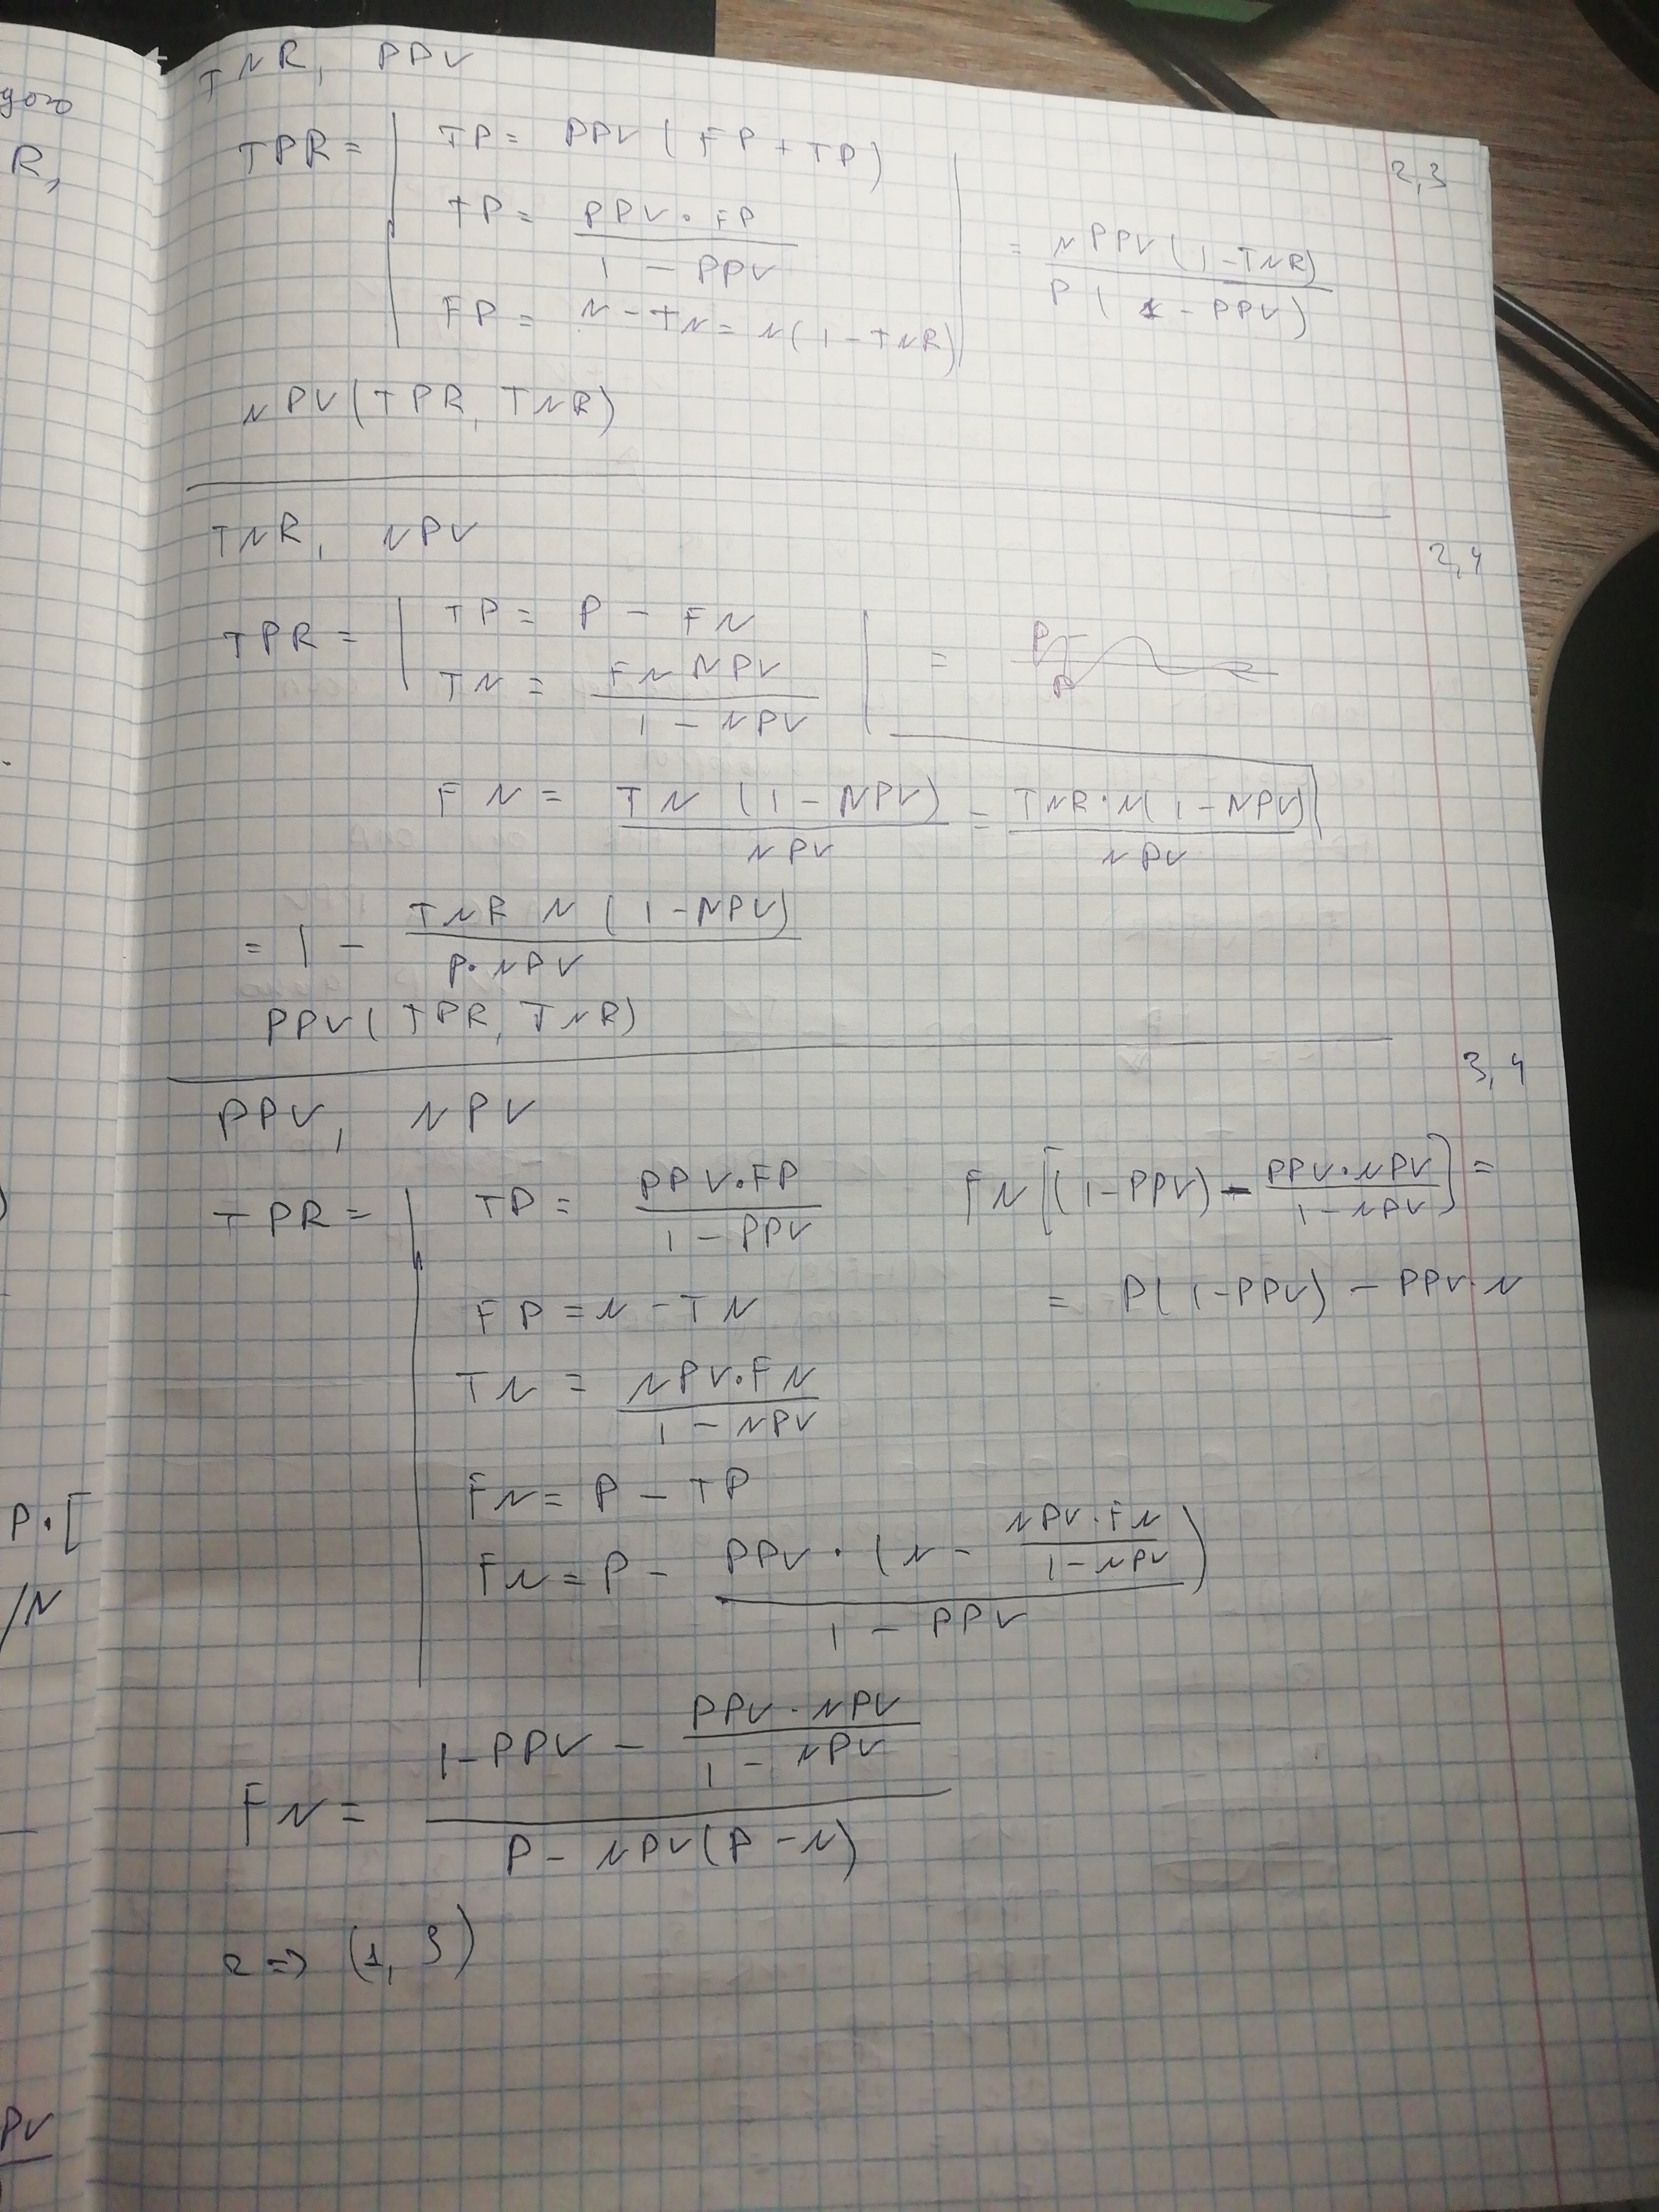 TNR, PPV
TPR = | TP = PPV (FP + TP)
2,3
TP = PPV · FP / 1 - PPV
FP = N - TN = N(1 - TNR) | = N PPV (1 - TNR) / P (1 - PPV)
NPV(TPR, TNR)
TNR, NPV
2,4
TPR = | TP = P - FN
TN = FN NPV / 1 - NPV | =
FN = TN (1 - NPV) / NPV = TNR · N(1 - NPV) / NPV
= 1 - TNR N (1 - NPV) / P · NPV
PPV(TPR, TNR)
3,4
PPV, NPV
TPR = | TP = PPV · FP / 1 - PPV
FP = N - TN
TN = NPV · FN / 1 - NPV
FN = P - TP
FN = P - PPV · (N - NPV · FN / 1 - NPV) / 1 - PPV
FN [(1 - PPV) - PPV · NPV / 1 - NPV] =
= P(1 - PPV) - PPV · N
FN = 1 - PPV - PPV · NPV / 1 - NPV / P - NPV(P - N)
R,
P · [
/N
PV